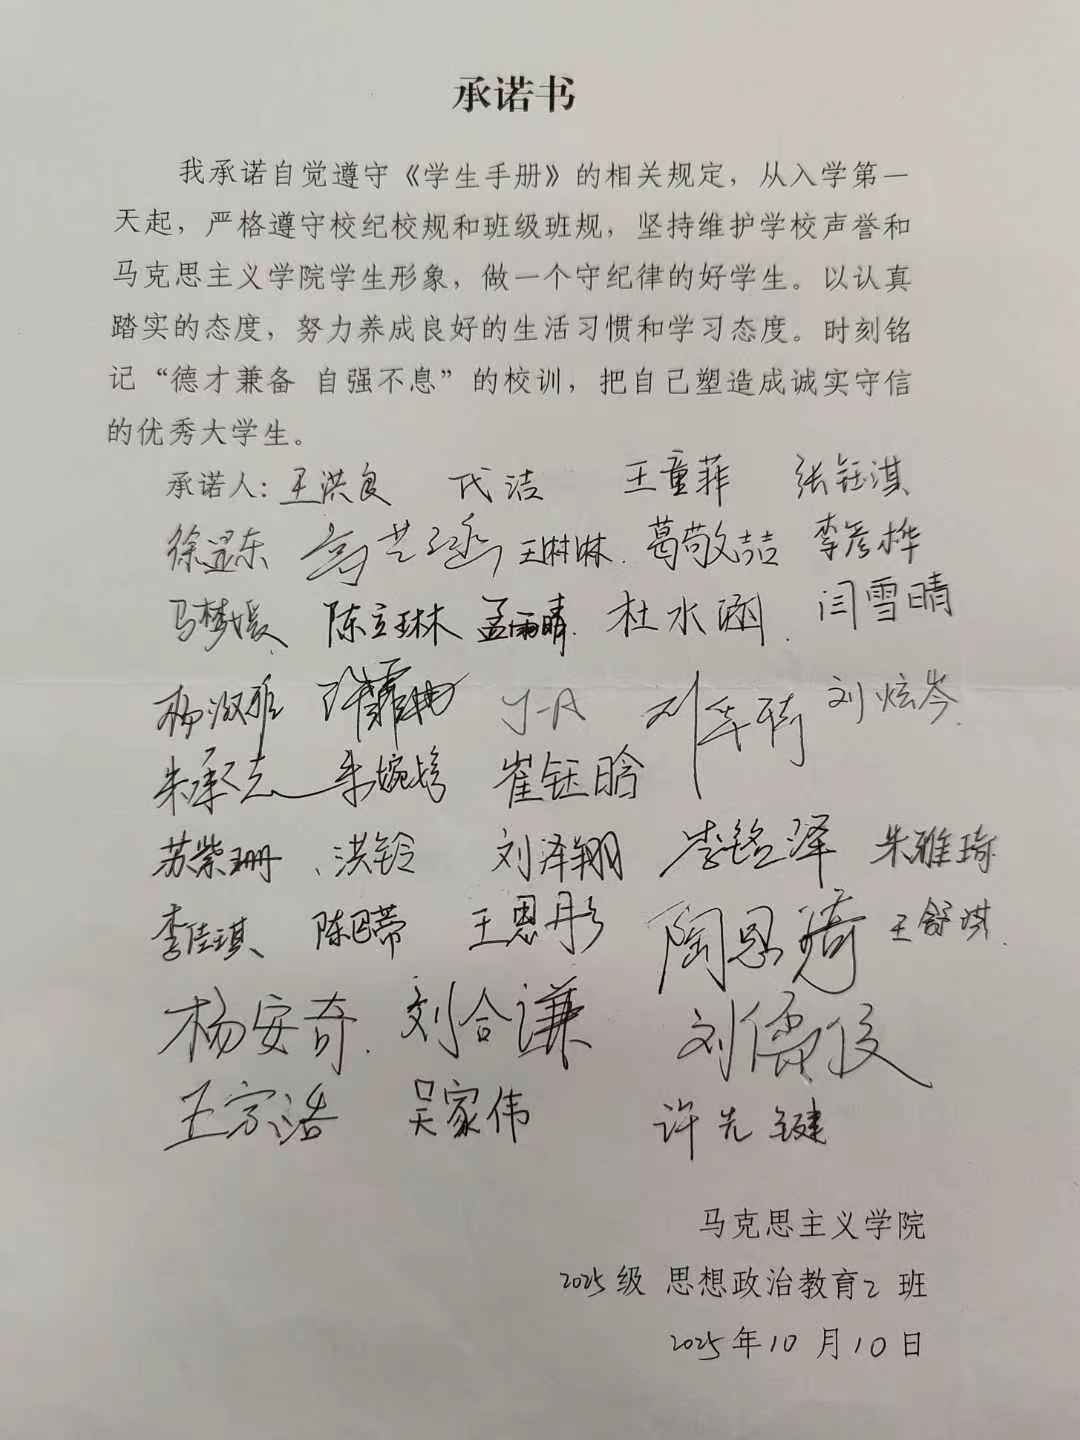 承诺书
我承诺自觉遵守《学生手册》的相关规定，从入学第一
天起，严格遵守校纪校规和班级班规，坚持维护学校声誉和
马克思主义学院学生形象，做一个守纪律的好学生。以认真
踏实的态度，努力养成良好的生活习惯和学习态度。时刻铭
记“德才兼备 自强不息”的校训，把自己塑造成诚实守信
的优秀大学生。
承诺人：王洪良 代洁 王童菲 张钰淇
徐显东 王琳琳 葛敬喆 李彦桦
马梦媛 陈立琳 孟雨晴 杜水涵 闫雪晴
杨淑雅 刘炫岑
朱承志 朱婉婷 崔钰晗
苏紫珊 洪铃 刘泽翔 李铭泽 朱雅琦
李佳琪 王恩彤 陶思琦 王舒淇
杨安奇 刘合谦 刘儒俊
王宗浩 吴家伟 许先键
马克思主义学院
2025级 思想政治教育2 班
2025年10月10日